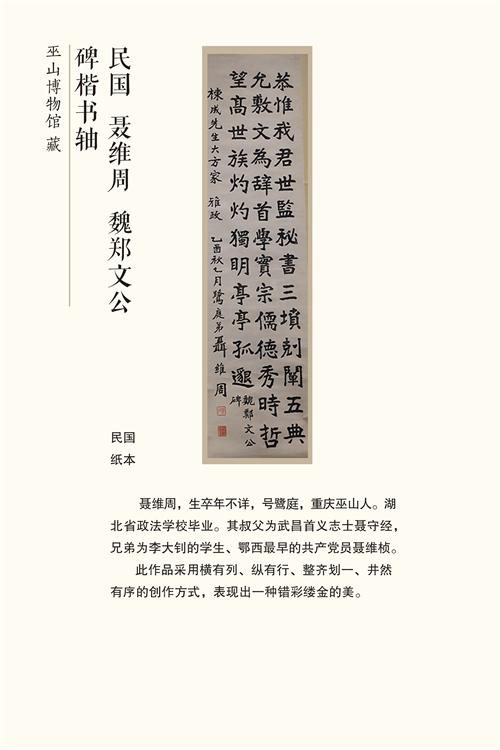 民国 聂维周 魏郑文公
碑楷书轴
巫山博物馆 藏
恭惟我君世監秘書三墳剋闡五典
允敷文為辞首學實宗儒德秀時哲
望高世族灼灼獨明亭亭孤邈
魏鄭文公
碑
棟成先生大方家 雅政
乙酉秋七月鷺庭弟聶維周
民国
纸本
聂维周，生卒年不详，号鹭庭，重庆巫山人。湖
北省政法学校毕业。其叔父为武昌首义志士聂守经，
兄弟为李大钊的学生、鄂西最早的共产党员聂维桢。
此作品采用横有列、纵有行、整齐划一、井然
有序的创作方式，表现出一种错彩缕金的美。